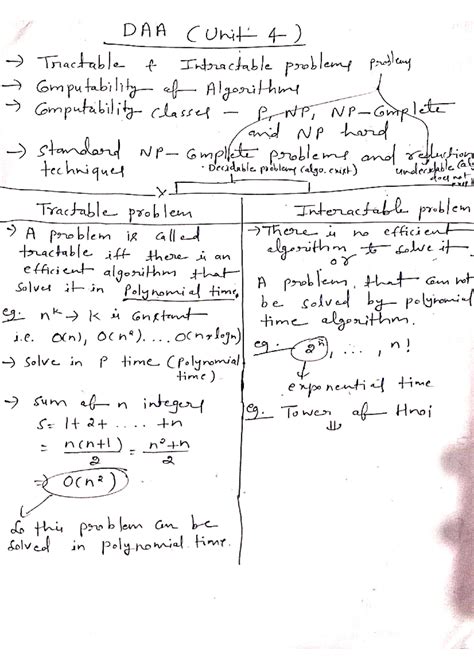 DAA (Unit 4)
→ Tractable & Intractable problems
→ Computability of Algorithms
→ Computability classes - P, NP, NP-Complete
and NP hard
→ Standard NP-Complete problems and reduction
techniques
Decidable problem (algo. exist)
undecidable (algo
does not
exist)
Tractable problem
→ A problem is called
tractable iff there is an
efficient algorithm that
solves it in Polynomial time.
eg. n^k → k is constant
i.e. O(n), O(n²).... O(n*logn)
→ solve in P time (Polynomial
time)
→ Sum of n integers
S = 1+2+ ..... +n
= n(n+1)/2 = n²+n/2
⇒ O(n²)
So this problem can be
solved in polynomial time.
Interactable problem
→ There is no efficient
algorithm to solve it.
or
A problem that can not
be solved by polynomial
time algorithm.
eg. 2^n, ...., n!
exponential time
eg. Tower of Hnoi